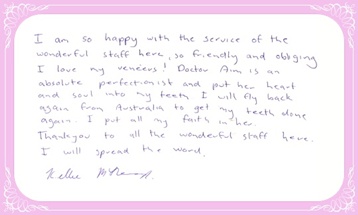 I am so happy with the service of the
wonderful staff here, so friendly and obliging
I love my veneers! Doctor Aim is an
absolute perfectionist and put her heart
and soul into my teeth I will fly back
again from Australia to get my teeth done
again. I put all my faith in her.
Thankyou to all the wonderful staff here.
I will spread the word.
Kellie